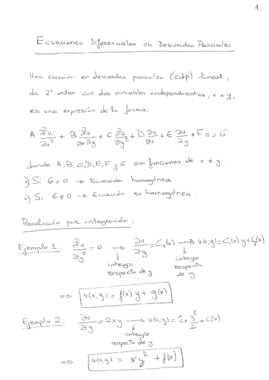 1.
Ecuaciones Diferenciales en Derivadas Parciales
Una ecuación en derivadas parciales (edp) lineal,
de 2º orden con dos variables independientes, x e y,
es una expresión de la forma:
A ∂²u/∂x² + B ∂²u/∂x∂y + C ∂²u/∂y² + D ∂u/∂x + E ∂u/∂y + Fu = G
donde A, B, C, D, E, F y G son funciones de x e y
i) Si G = 0 → Ecuación homogénea
ii) Si G ≠ 0 → Ecuación no homogénea
Resolución por integración:
Ejemplo 1: ∂²u/∂y² = 0 → ∂u/∂y = C₁(x) → u(x,y) = C₁(x) y + C₂(x)
integro respecto de y
integro respecto de y
⇒ u(x,y) = f(x) y + g(x)
Ejemplo 2: ∂u/∂y = 2xy → u(x,y) = 2x y²/2 + C(x)
integro respecto de y
⇒ u(x,y) = x y² + f(x)